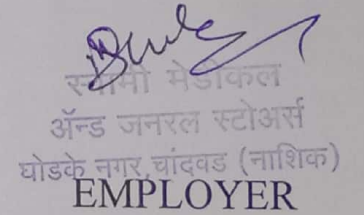 स्वामी मेडीकल
ॲन्ड जनरल स्टोअर्स
घोडके नगर,चांदवड (नाशिक)
EMPLOYER